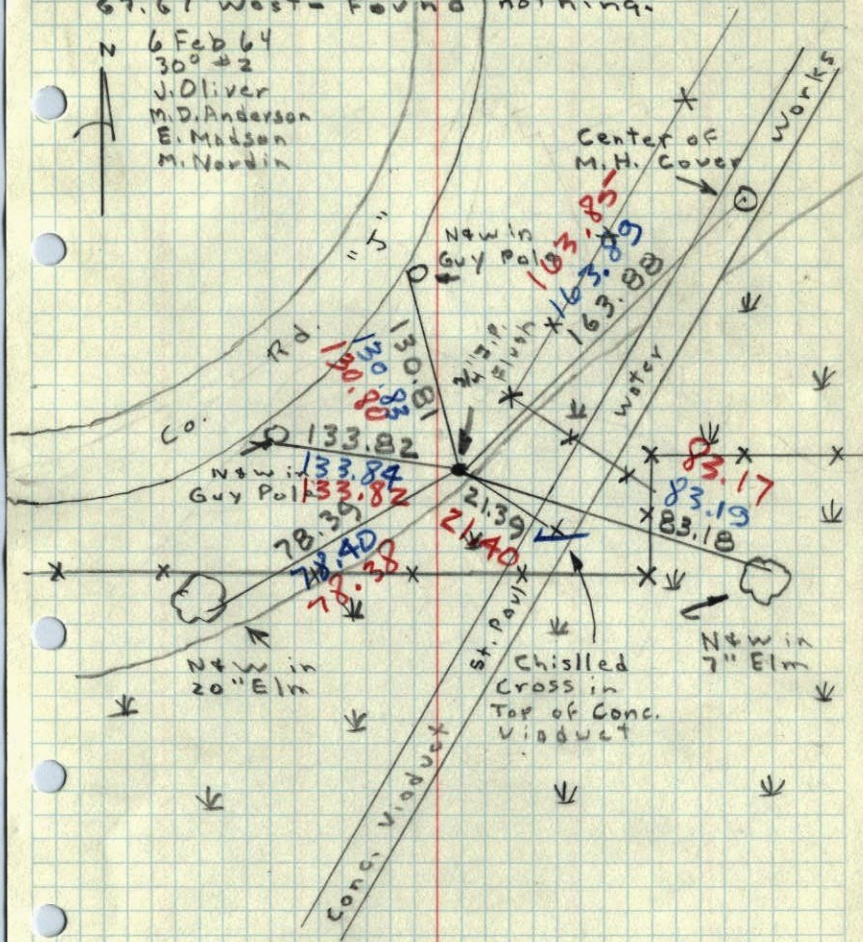 67.67 West - Found nothing.
N
6 Feb 64
30° #2
J. Oliver
M.D. Anderson
E. Madson
M. Nordin
Center of
M.H. Cover
Works
"J"
Rd.
Co.
N&W in
Guy Pole
163.85
163.89
163.88
130.81
130.83
130.80
3/4" I.P.
Flush
Water
133.82
133.84
133.82
N&W in
Guy Pole
78.39
78.40
78.38
21.39
21.40
83.17
83.19
83.18
St. Paul
N&W in
20" Elm
Chislled
Cross in
Top of Conc.
Viaduct
N&W in
7" Elm
Conc. Viaduct